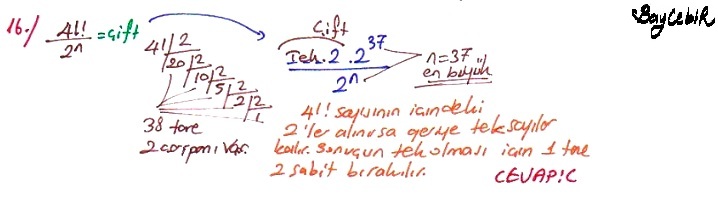 BayCebir
16./ 41!/2ⁿ = çift
41 | 2
20 | 2
10 | 2
5 | 2
2 | 2
1
38 tane
2 çarpanı var.
Çift
Tek.2.2³⁷ / 2ⁿ
n=37
en büyük
41! sayısının içindeki
2'ler alınırsa geriye tek sayılar
kalır. Sonucun tek olması için 1 tane
2 sabit bırakılır.
CEVAP: C